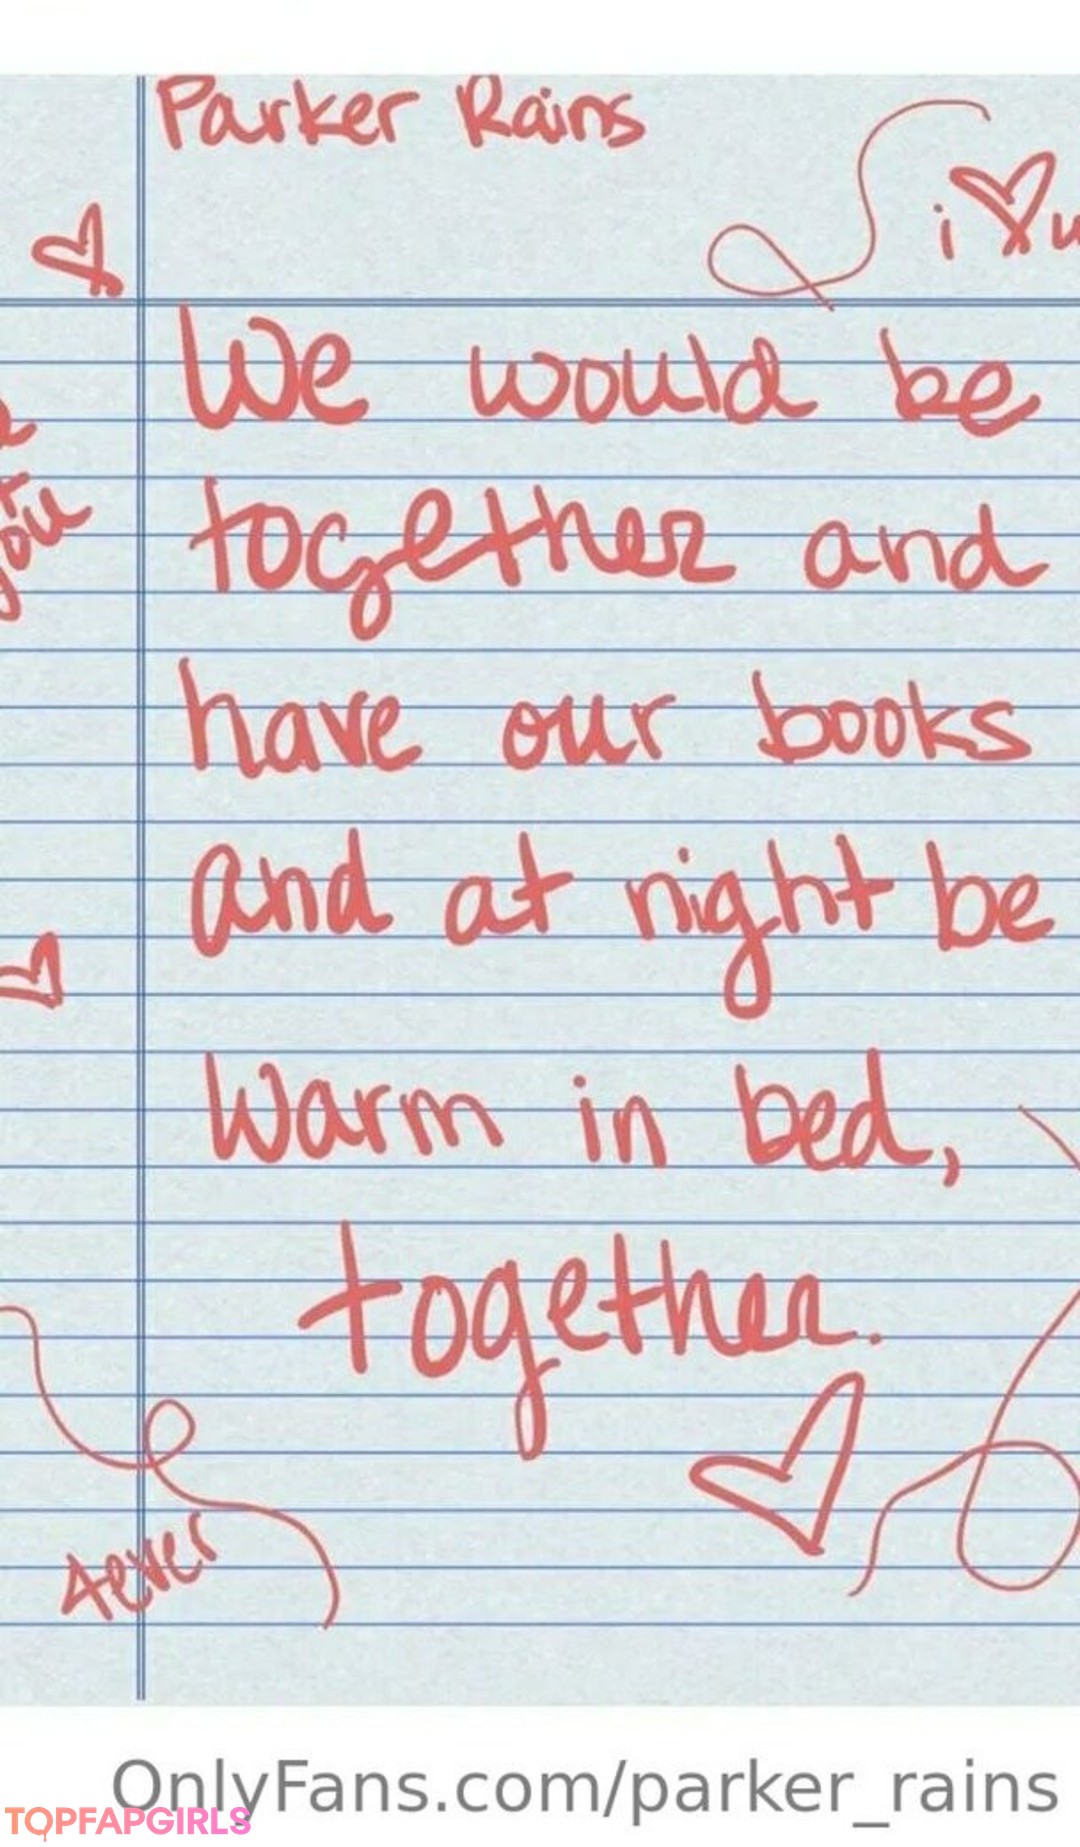 Parker Rains
i ♡ u
We would be
together and
you
have our books
and at night be
warm in bed,
together.
4ever
OnlyFans.com/parker_rains
TOPFAPGIRLS